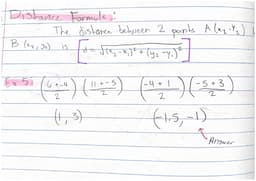 Distance Formula:
The distance between 2 points A (x₁, y₁)
B (x₂, y₂) is d = √(x₂ - x₁)² + (y₂ - y₁)²
Ex 5: (6+-4/2) (11+-5/2) (-4+1/2) (-5+3/2)
(1, 3) (-1.5, -1)
Answer